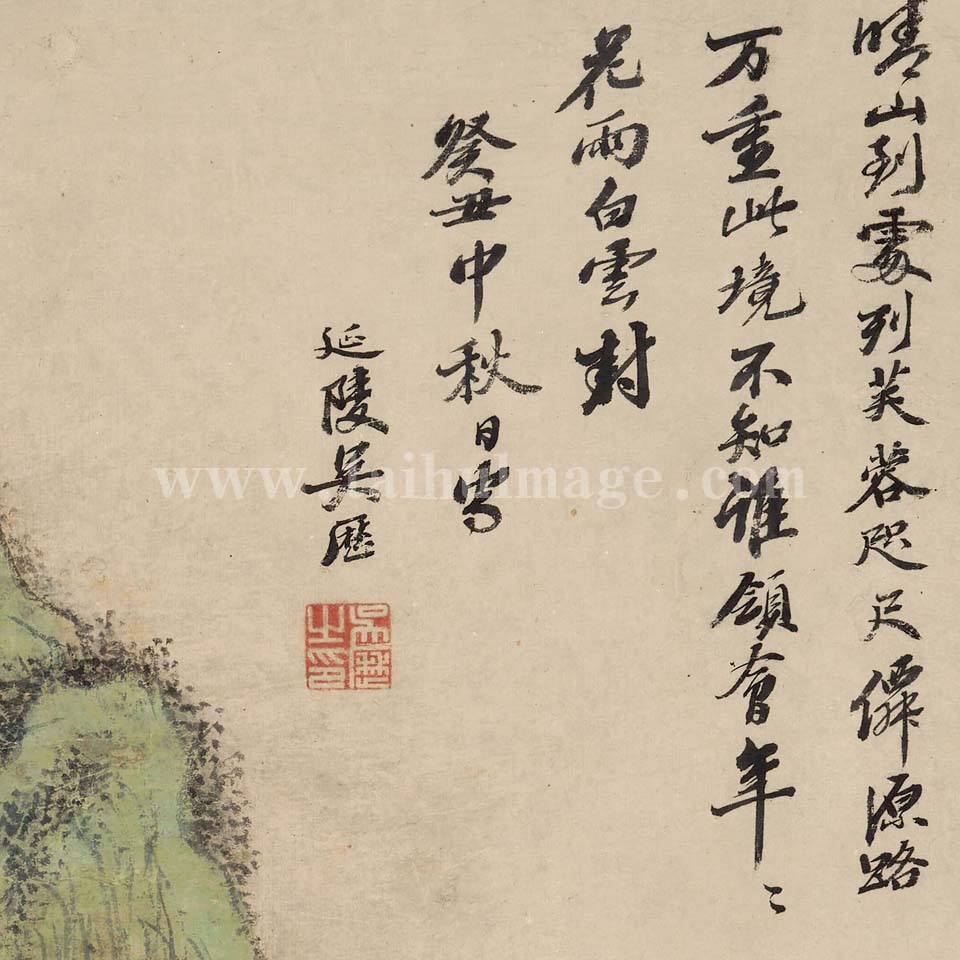 晴山到處列芙蓉咫尺僊源路
万重此境不知誰領會年〻
花雨白雲封
癸丑中秋日寫
延陵吳歷
吳歷之印